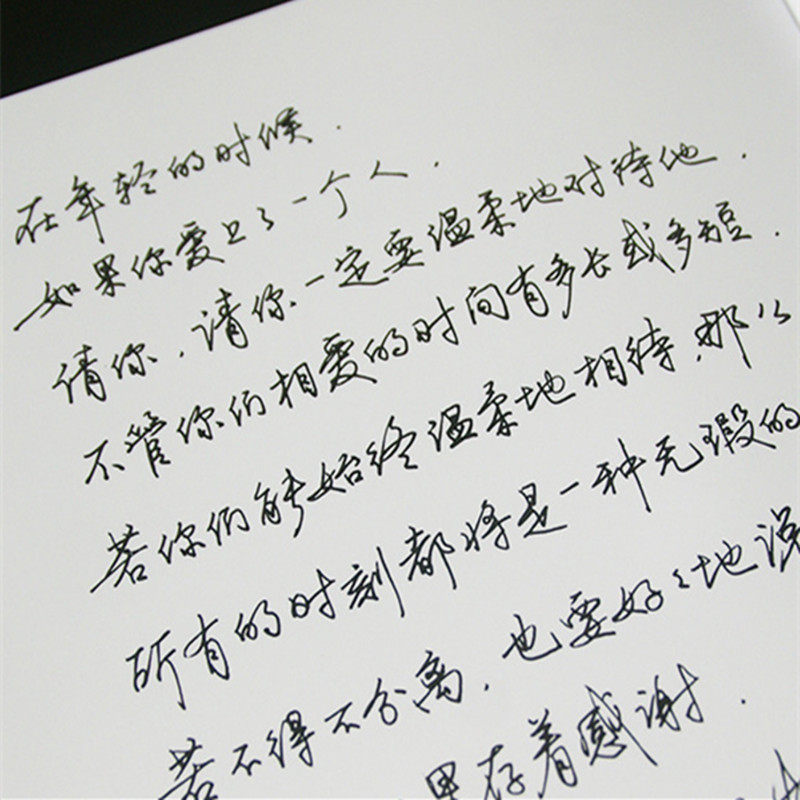 在年轻的时候.
如果你爱上了一个人.
请你.请你.一定要温柔地对待他.
不管你们相爱的时间有多长或多短.
若你们能始终温柔地相待.那么
所有的时刻都将是一种无瑕的
若不得不分离.也要好々地说
里存着感谢.